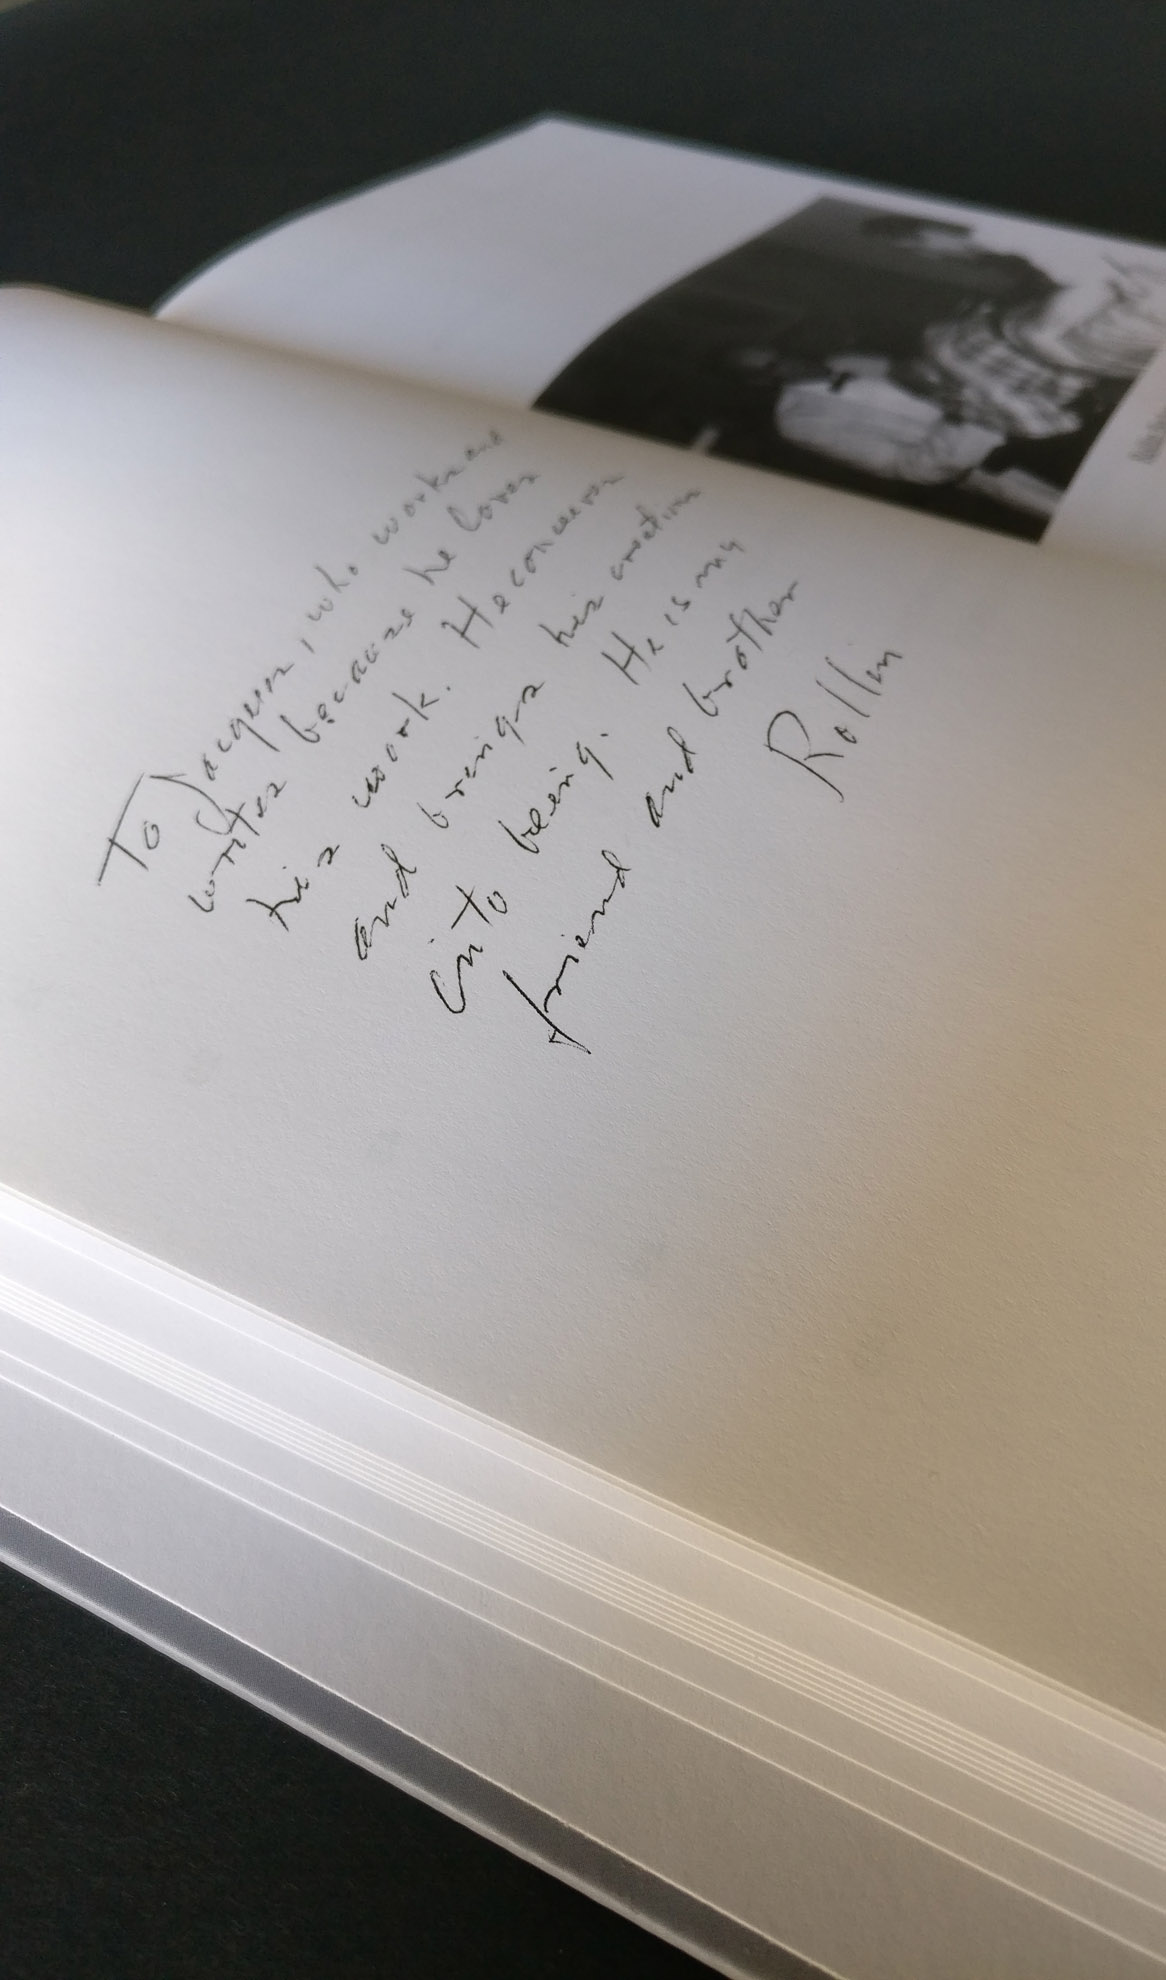 To Jacques, who works and
writes because he loves
his work. He conceives
and brings his creation
into being. He is my
friend and brother
Rollin